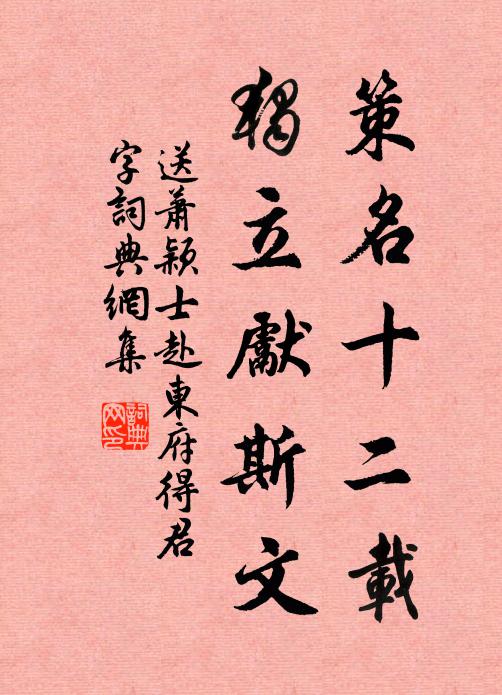 策名十二載
獨立獻斯文
送蕭潁士赴東府得君
字詞典網集
詞典
网印